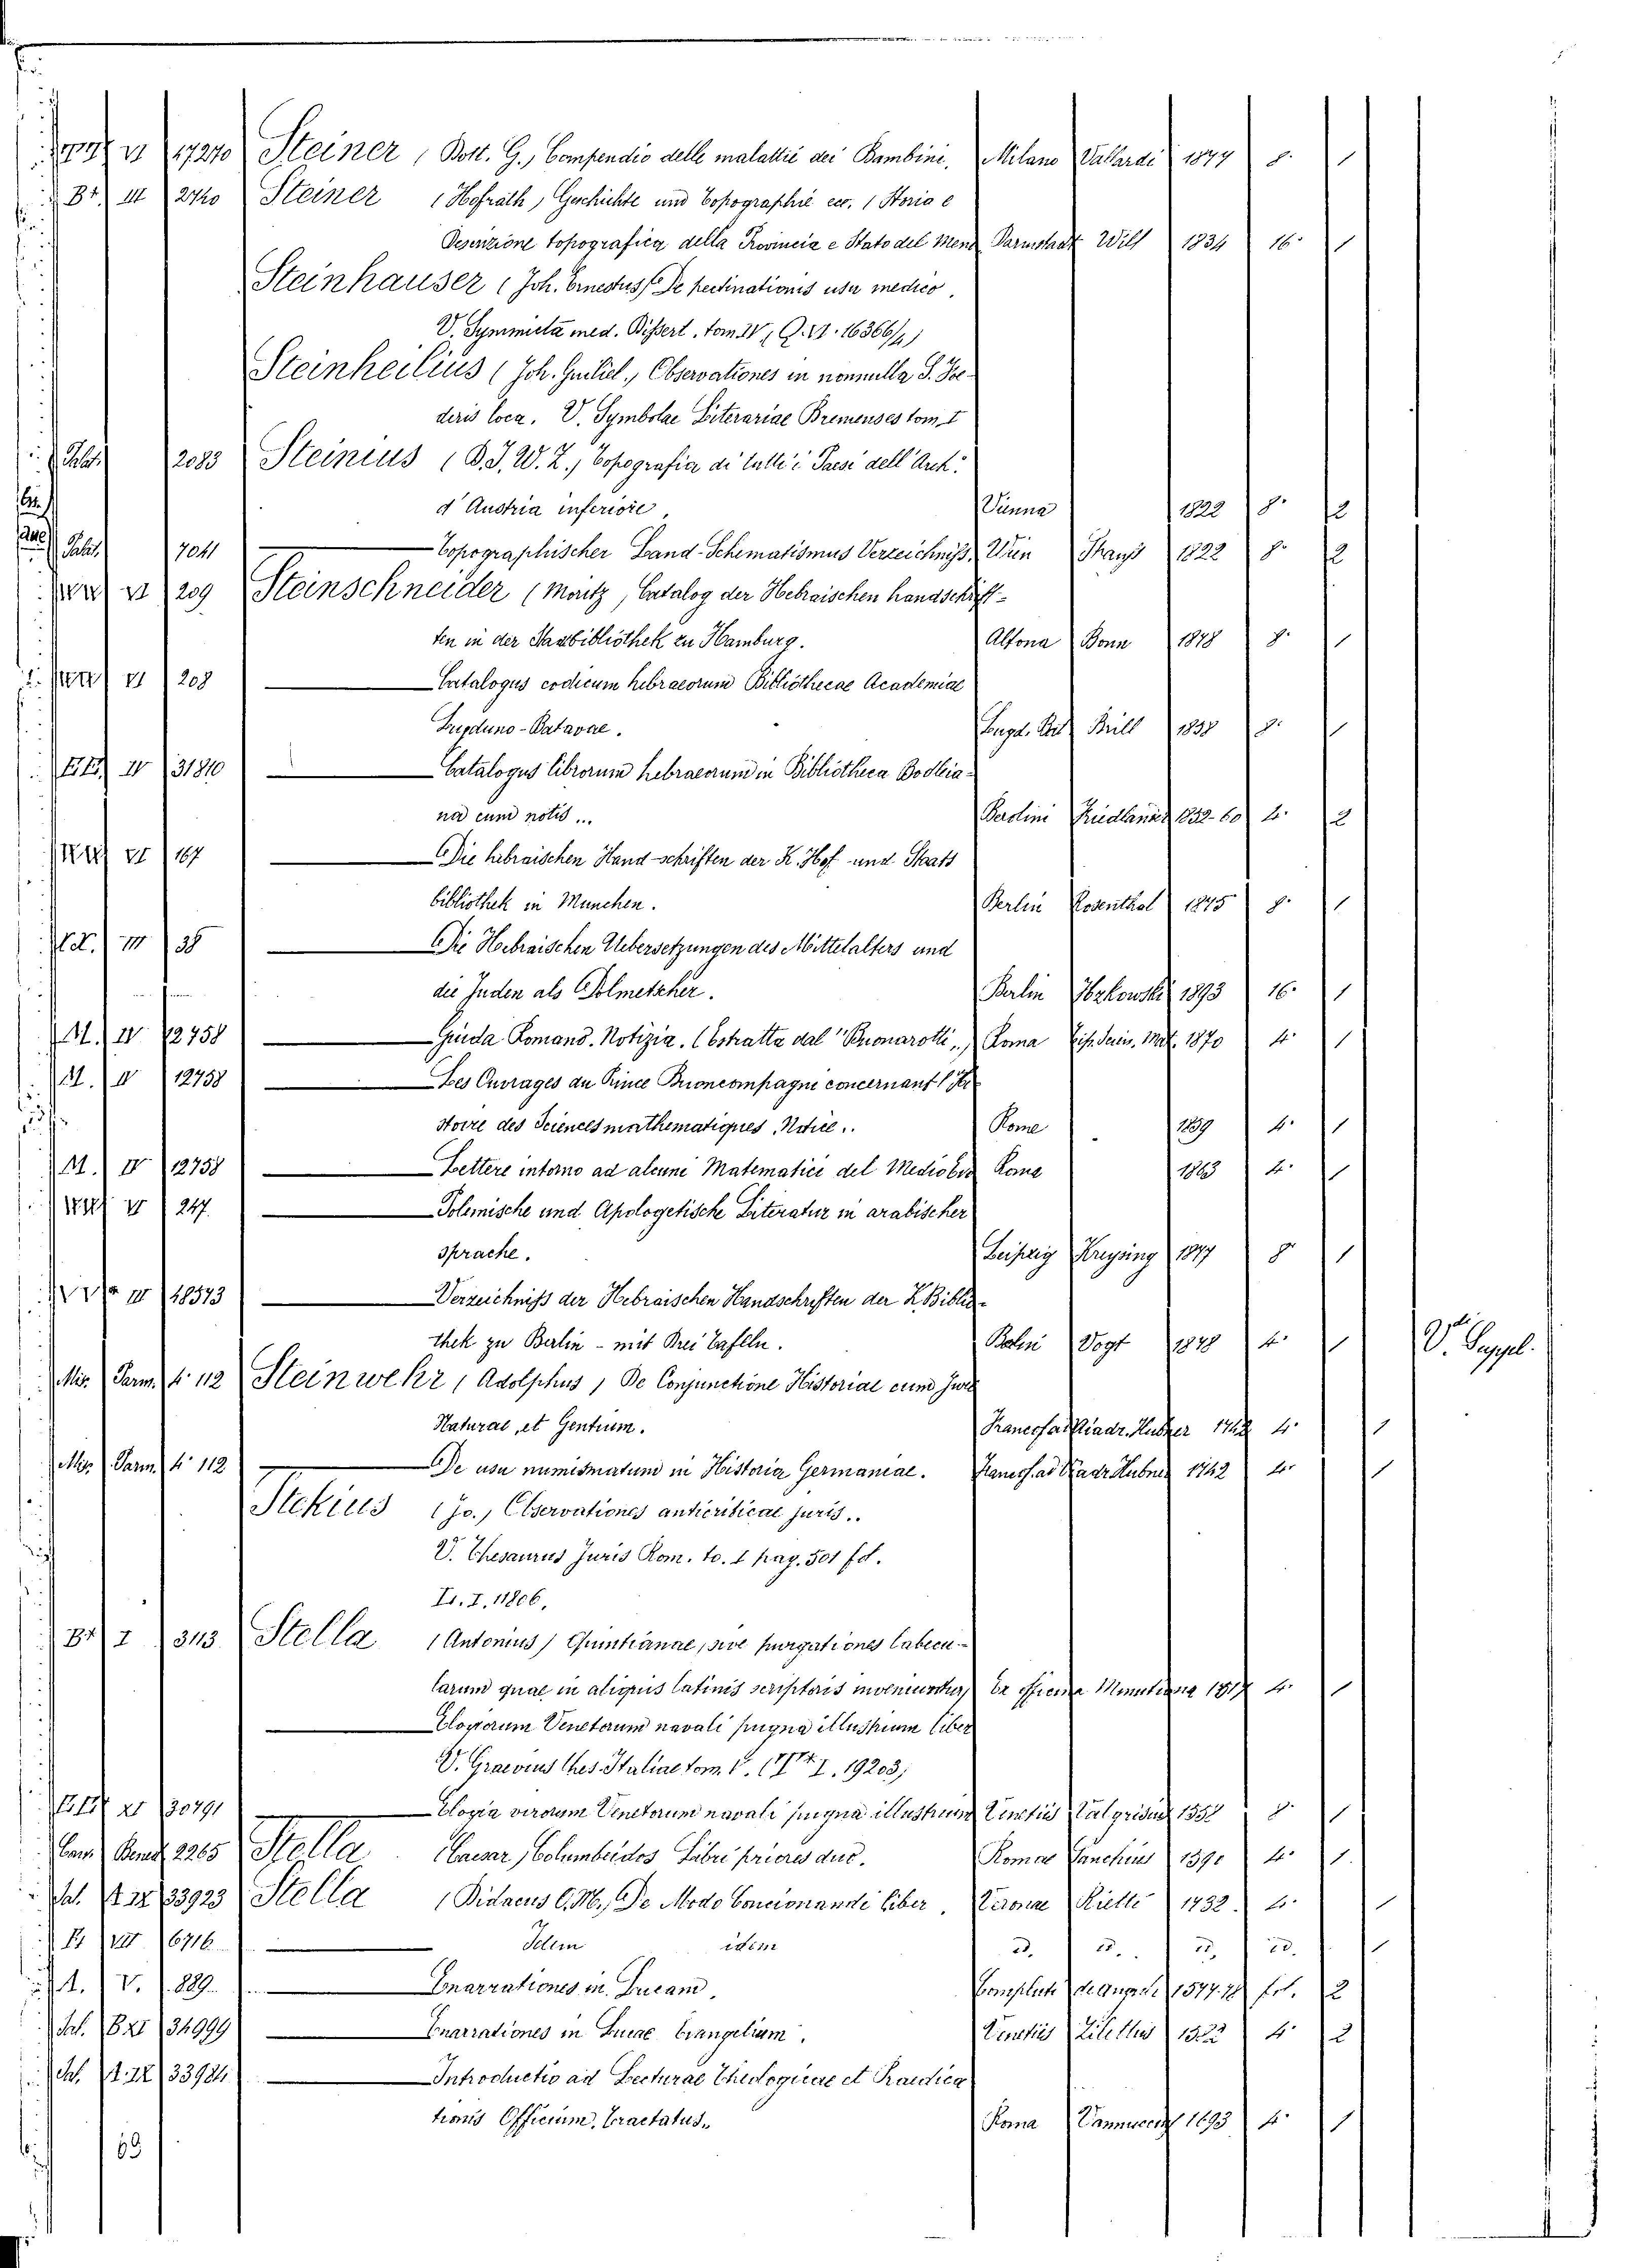 VI 17270 Steiner (Dott. G.) Compendio delle malattie dei Bambini. Milano Vallardi 1877 8. 1
B+. III 2740 Steiner (Hofrath) Geschichte und Topographie ecc. (Storia e
Descrizione topografica della Provincia e Stato del Meno Darmstadt Will 1834 16. 1
Steinhauser (Joh. Ernestus) De pectinationis usu medico.
V. Symmicta med. Dissert. tom. IV (Q. VI. 16366/4)
Steinheilius (Joh. Guiliel.) Observationes in nonnulla S. Foe-
deris loca. V. Symbolae Literariae Bremenses tom. I
Palat. 2083 Steinius (B. J. W. Z.) Topografia di tutti i Paesi dell'Arch.
d'Austria inferiore. Vienna 1822 8. 2
Palat. 7041 — Topographischer Land-Schematismus Verzeichniss. Wien Strauss 1822 8. 2
VI 209 Steinschneider (Moritz) Catalog der Hebraischen handschrift-
ten in der Stadtbibliothek zu Hamburg. Altona Bonn 1878 8. 1
VI 208 — Catalogus codicum hebraeorum Bibliothecae Academiae
Lugduno-Batavae. Lugd. Bat. Brill 1858 8. 1
IV 31810 — Catalogus librorum hebraeorum in Bibliotheca Bodleia-
na cum notis... Berolini Friedlander 1852-60 4. 2
VI 167 — Die hebraischen Hand-schriften der K. Hof- und Staats
bibliothek in Munchen. Berlin Rosenthal 1875 8. 1
III 38 — Die Hebraischen Uebersetzungen des Mittelalters und
die Juden als Dolmetscher. Berlin Itzkowski 1893 16. 1
M. IV 12758 — Guida Romano. Notizia. (Estratta dal "Buonarotti") Roma Tip. Scien. Mat. 1870 4. 1
M. IV 12758 — Les Ouvrages du Prince Buoncompagni concernant l'Hi-
stoire des Sciences mathematiques. Notice. Rome 1859 4. 1
M. IV 12758 — Lettere intorno ad alcuni Matematici del Medio Evo Roma 1863 4. 1
VI 247 — Polemische und Apologetische Literatur in arabischer
sprache. Leipzig Kreysing 1877 8. 1
IV 18573 — Verzeichniss der Hebraischen Handschriften der K. Biblio-
thek zu Berlin - mit Drei Tafeln. Berlin Vogt 1878 4. 1 V. Suppl.
Mis. Parm. 4° 112 Steinwehr (Adolphus) De Conjunctione Historiae cum Jure
Naturae, et Gentium. Francof. ad Viadr. Hubner 1742 4. 1
Mis. Parm. 4° 112 — De usu numismatum in Historia Germaniae. Francof. ad Viadr. Hubner 1742 4. 1
Stekius (Jo.) Observationes anticriticae juris.
V. Thesaurus Juris Rom. to. I pag. 501 fol.
I. 11806.
B+ I 3113 Stella (Antonius) Quintianae, sive purgationes labecu-
larum quae in aliquis latinis scriptoris inveniuntur. Ex officina Minutiana 1517 4. 1
— Elogiorum Venetorum navali pugna illustrium liber
V. Graevius Thes. Italiae tom. V. I. 19203,
XI 30791 — Elogia virorum Venetorum navali pugna illustrium Venetiis Valgrisius 1558 8. 1
Bened. 2265 Stella (Caesar) Columbeidos Libri priores duo. Romae Sanchius 1590 4. 1
Sal. 33923 Stella (Didacus O.M.) De Modo Concionandi liber. Veronae Rietti 1732 4. 1
B VII 6716 — Idem idem id. id. id. id. 1
A. V. 889 — Enarrationes in Lucam. Compluti de Angulo 1577.78 fol. 2
Sal. B XI 34999 — Enarrationes in Lucae Evangelium. Venetiis Zilettus 1582 4. 2
Sal. 33984 — Introductio ad Lecturae Theologicae et Praedica
tionis Officium, Tractatus. Roma Vannucci 1693 4. 1
63